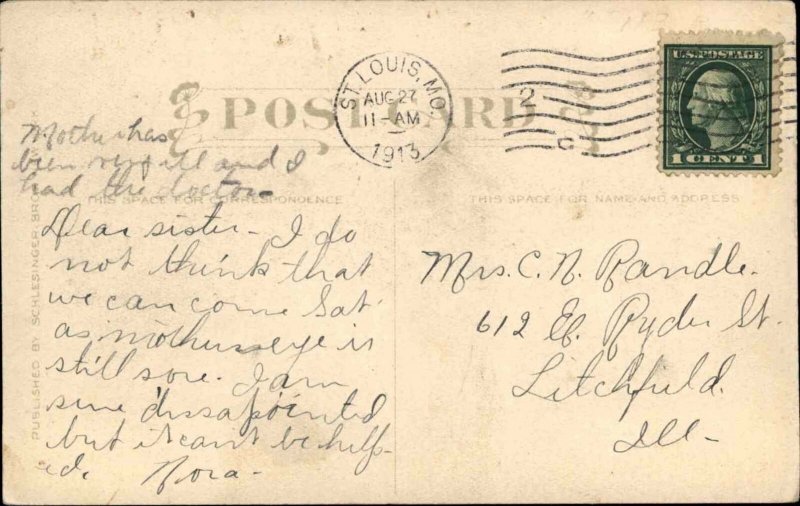 POST CARD
ST. LOUIS, MO.
AUG 27
11-AM
1913
2
C
U.S. POSTAGE
1 CENT 1
Mother has
been very ill and I
had the doctor-
THIS SPACE FOR CORRESPONDENCE
THIS SPACE FOR NAME AND ADDRESS
Dear sister - I do
not think that
we can come Sat.
as mothers eye is
still sore. I am
sure dissapointed
but it cant be help-
ed. Nora-
Mrs. C. N. Randle.
612 E. Ryder St.
Litchfield.
Ill-
PUBLISHED BY SCHLESINGER BROS.